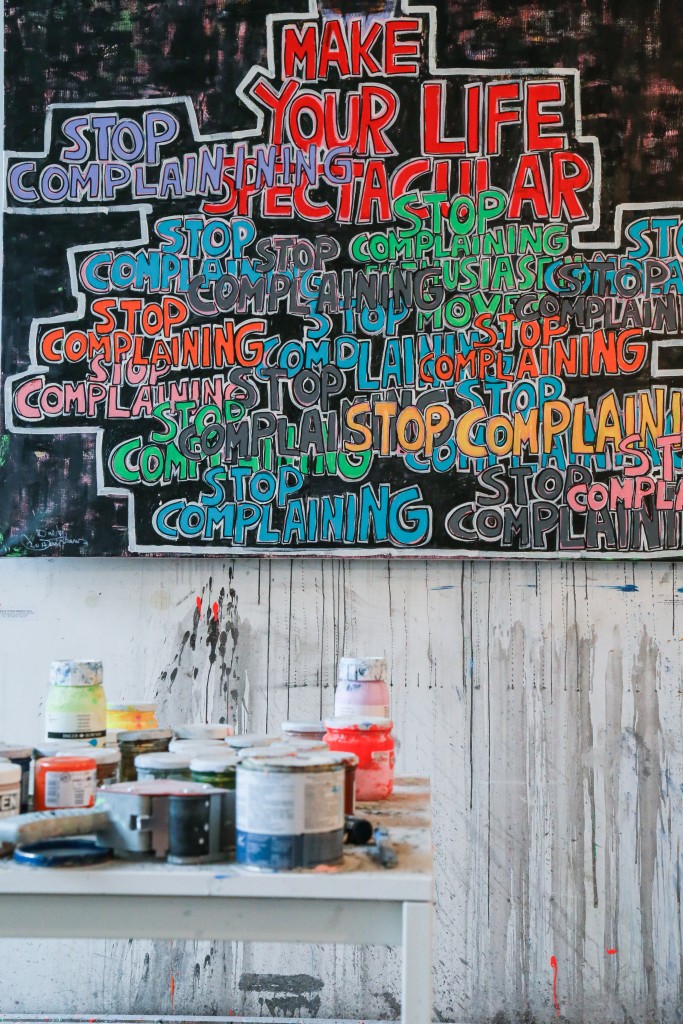 MAKE
YOUR LIFE
SPECTACULAR
STOP
COMPLAINING
STOP
COMPLAINING
STOP
COMPLAINING
STOP
COMPLAINING
STO
STOP
COMPLAINING
STOP
COMPLAINING
STOP
COMPLAINING
STOP
COMPLAINING
STOP
COMPLAINING
STOP
COMPLAINING
STOP
COMPLAINING
STOP
STOP COMPLAINI
STOP
COMPLAINING
STOP
COMPLAINING
STOP
COMPLAINI
ST
COMPLA